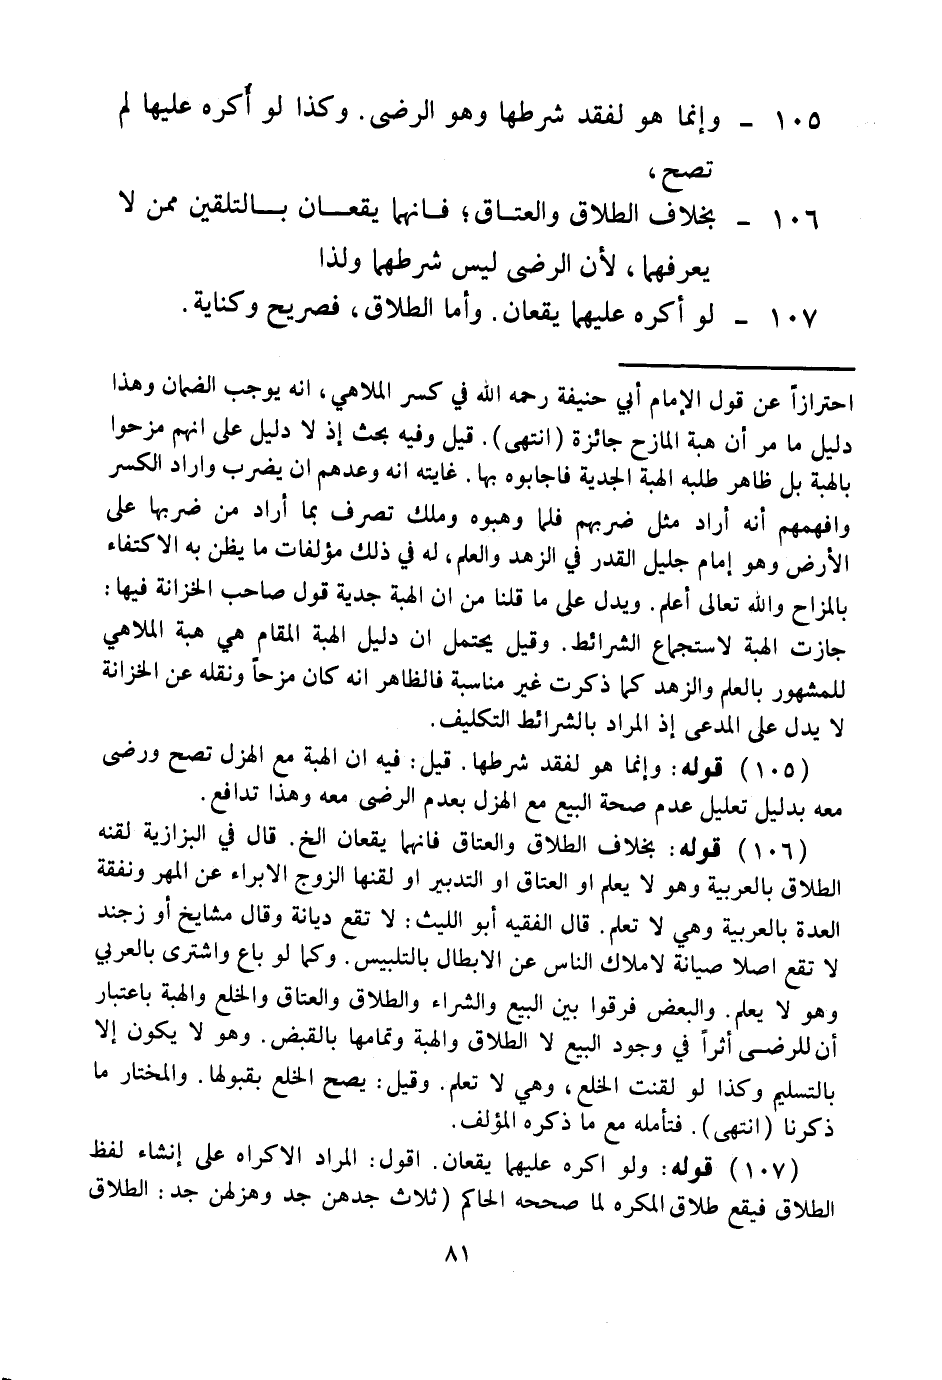 ١٠٥ ـ وإنما هو لفقد شرطها وهو الرضى. وكذا لو أكره عليها لم
تصح،
١٠٦ ـ بخلاف الطلاق والعتـاق؛ فـانهما يقعـــان بـــالتلقين ممن لا
يعرفهما، لأن الرضى ليس شرطهما ولذا
١٠٧ ـ لو أكره عليهما يقعان. وأما الطلاق، فصريح وكناية.
احترازاً عن قول الإمام أبي حنيفة رحمه الله في كسر الملاهي، انه يوجب الضمان وهذا
دليل ما مر أن هبة المازح جائزة (انتهى). قيل وفيه بحث إذ لا دليل على انهم مزحوا
بالهبة بل ظاهر طلبه الهبة الجدية فاجابوه بها. غايته انه وعدهم ان يضرب واراد الكسر
وافهمهم أنه أراد مثل ضربهم فلما وهبوه وملك تصرف بما أراد من ضربها على
الأرض وهو إمام جليل القدر في الزهد والعلم، له في ذلك مؤلفات ما يظن به الاكتفاء
بالمزاح والله تعالى أعلم. ويدل على ما قلنا من ان الهبة جدية قول صاحب الخزانة فيها:
جازت الهبة لاستجماع الشرائط. وقيل يحتمل ان دليل الهبة المقام هي هبة الملاهي
للمشهور بالعلم والزهد كما ذكرت غير مناسبة فالظاهر انه كان مزحاً ونقله عن الخزانة
لا يدل على المدعى إذ المراد بالشرائط التكليف.
(١٠٥) قوله: وإنما هو لفقد شرطها. قيل: فيه ان الهبة مع الهزل تصح ورضى
معه بدليل تعليل عدم صحة البيع مع الهزل بعدم الرضى معه وهذا تدافع.
(١٠٦) قوله: بخلاف الطلاق والعتاق فانهما يقعان الخ. قال في البزازية لقنه
الطلاق بالعربية وهو لا يعلم او العتاق او التدبير او لقنها الزوج الابراء عن المهر ونفقة
العدة بالعربية وهي لا تعلم. قال الفقيه أبو الليث: لا تقع ديانة وقال مشايخ أو زجند
لا تقع اصلا صيانة لاملاك الناس عن الابطال بالتلبيس. وكما لو باع واشترى بالعربي
وهو لا يعلم. والبعض فرقوا بين البيع والشراء والطلاق والعتاق والخلع والهبة باعتبار
أن للرضــى أثراً في وجود البيع لا الطلاق والهبة وتمامها بالقبض. وهو لا يكون إلا
بالتسليم وكذا لو لقنت الخلع، وهي لا تعلم. وقيل: يصح الخلع بقبولها. والمختار ما
ذكرنا (انتهى). فتأمله مع ما ذكره المؤلف.
(١٠٧) قوله: ولو اكره عليهما يقعان. اقول: المراد الاكراه على إنشاء لفظ
الطلاق فيقع طلاق المكره لما صححه الحاكم (ثلاث جدهن جد وهزلهن جد: الطلاق
٨١